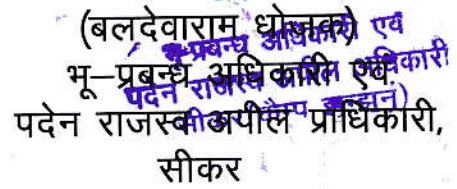 (बलदेवाराम धोजक)
भू–प्रबन्ध अधिकारी एवं
पदेन राजस्व अपील प्राधिकारी,
सीकर
भू-प्रबन्ध अधिकारी एवं
पदेन राजस्व अपील अधिकारी
सीकर कैम्प झुन्झुनूं)